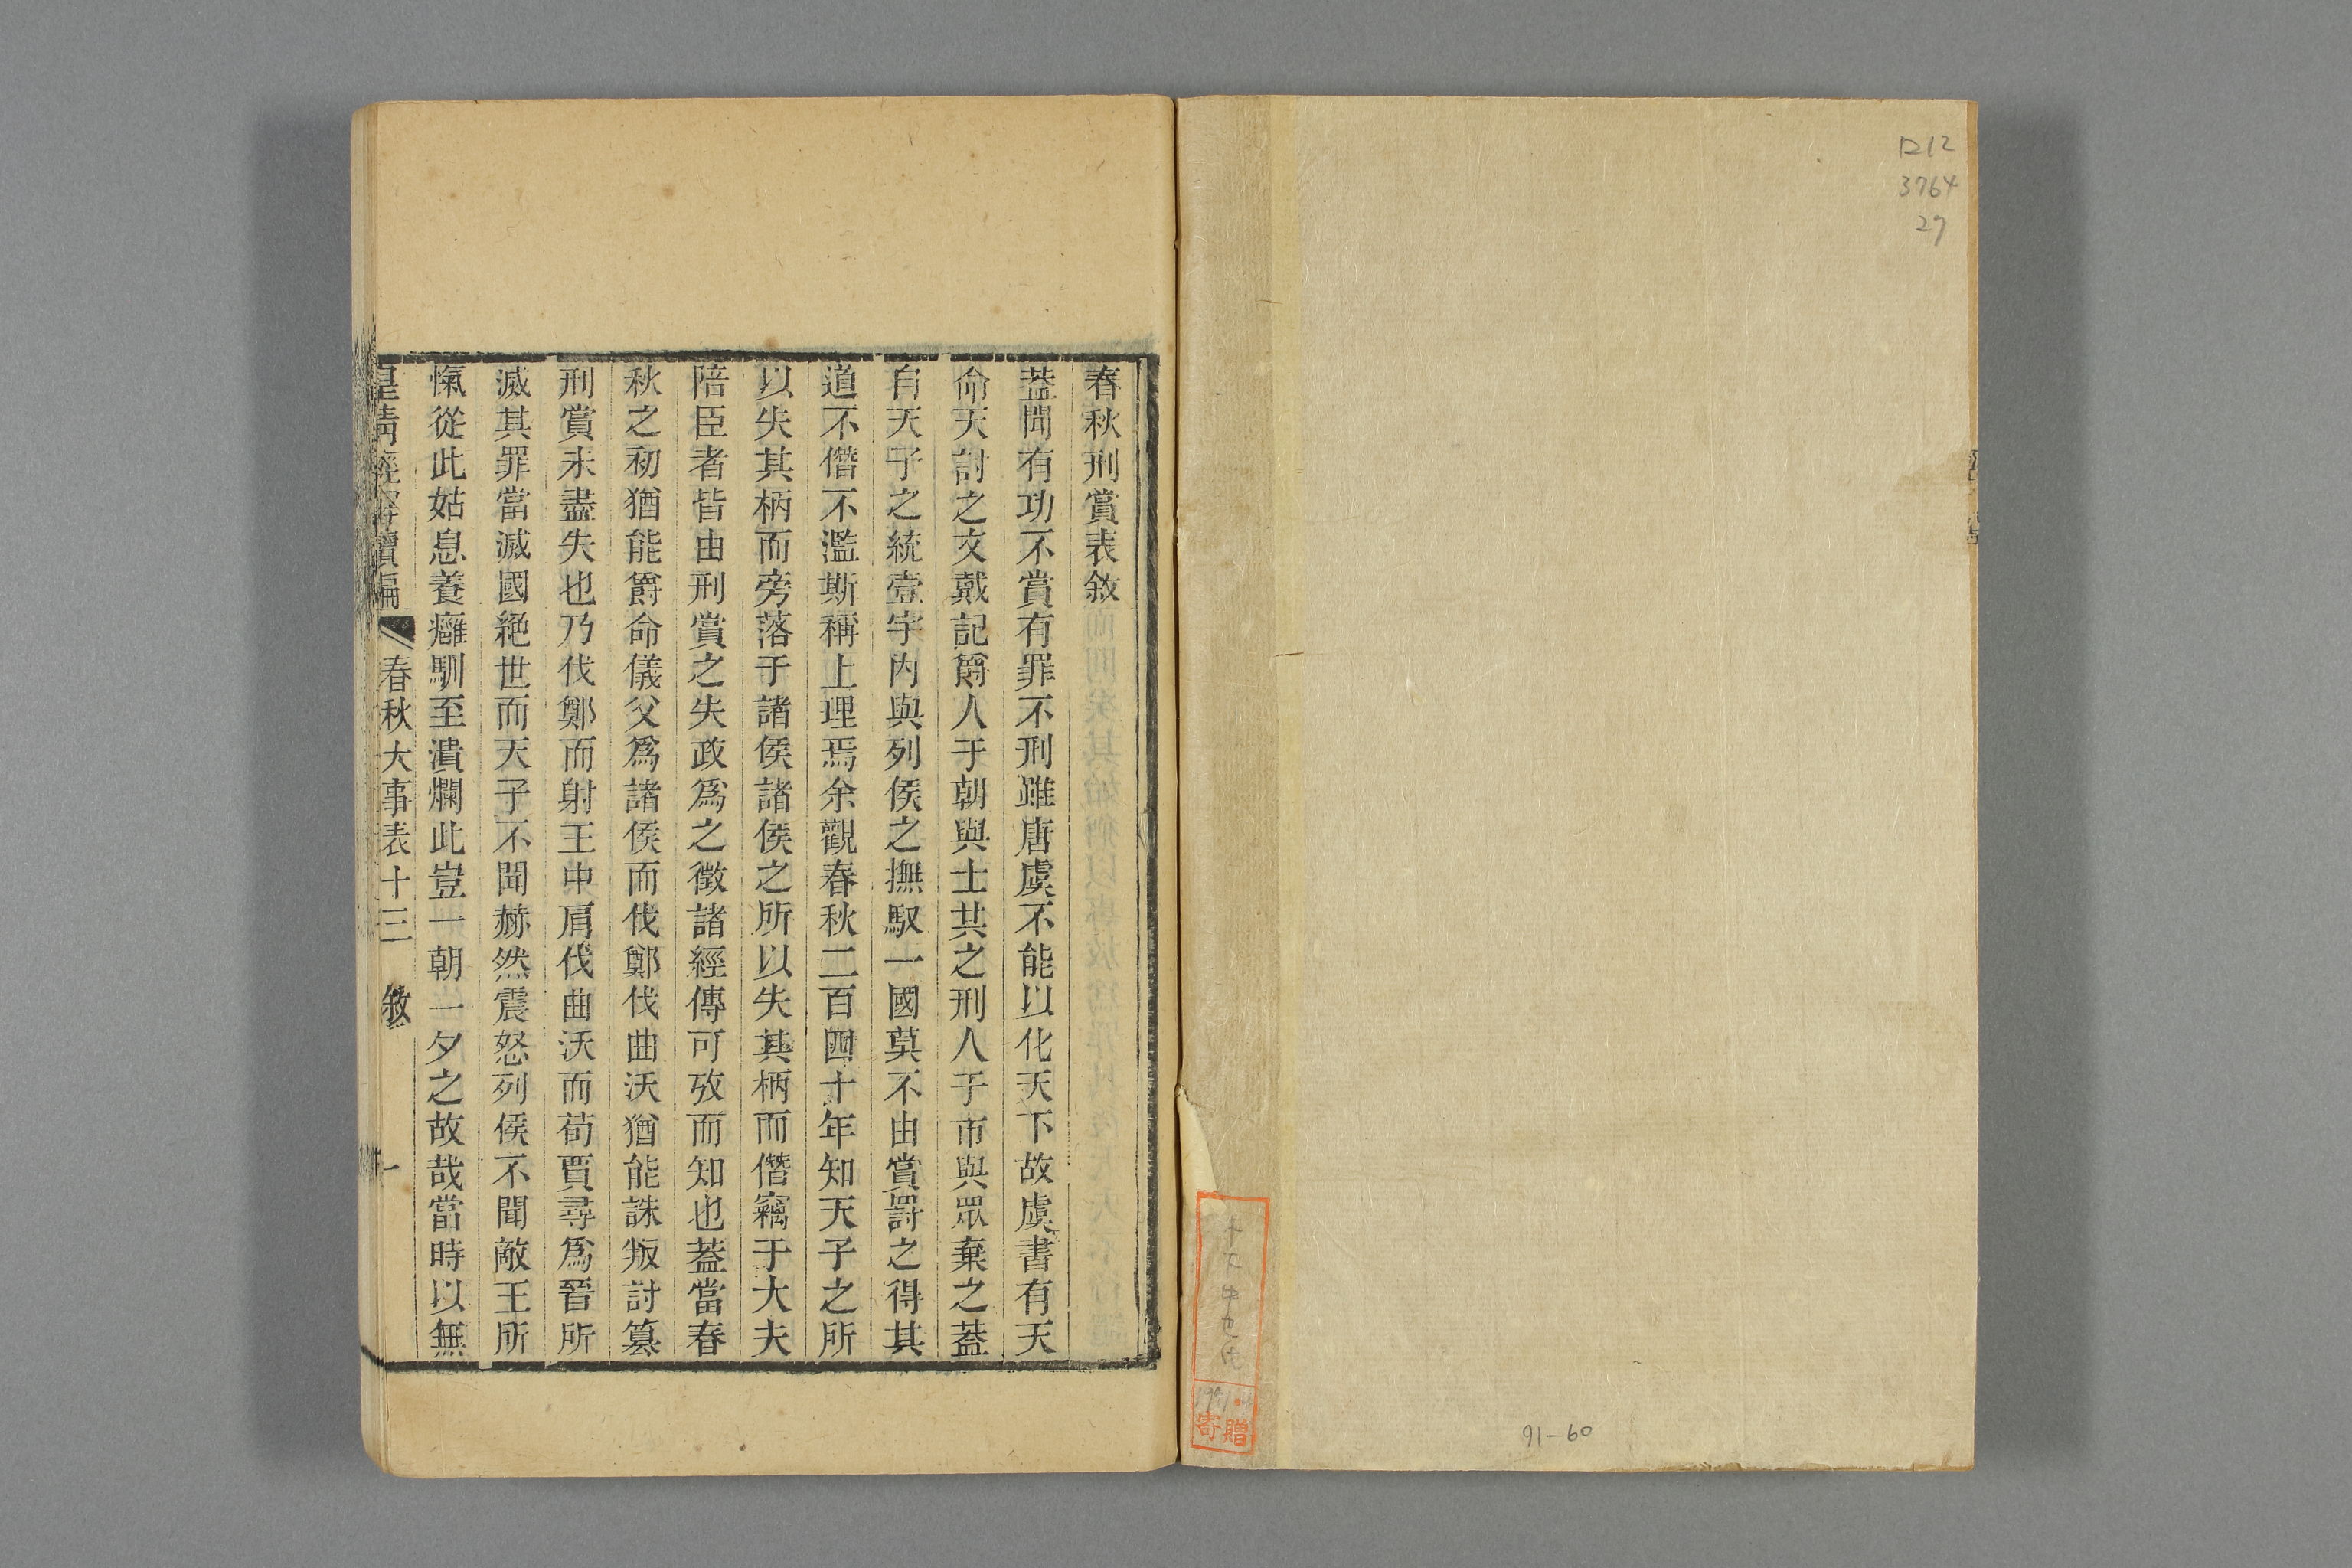 D12
3764
27
91-60
寄贈
春秋刑賞表敘
蓋聞有功不賞有罪不刑雖唐虞不能以化天下故虞書有天
命天討之文戴記爵人于朝與士共之刑人于市與眾棄之蓋
自天子之統壹宇內與列侯之撫馭一國莫不由賞罰之得其
道不僭不濫斯稱上理焉余觀春秋二百四十年知天子之所
以失其柄而旁落于諸侯諸侯之所以失其柄而僭竊于大夫
陪臣者皆由刑賞之失政爲之徵諸經傳可攷而知也蓋當春
秋之初猶能爵命儀父爲諸侯而伐鄭伐曲沃猶能誅叛討篡
刑賞未盡失也乃伐鄭而射王中肩伐曲沃而荀賈尋爲晉所
滅其罪當滅國絕世而天子不聞赫然震怒列侯不聞敵王所
愾從此姑息養癰馴至潰爛此豈一朝一夕之故哉當時以無
皇清經解續編 春秋大事表十三 敘 一